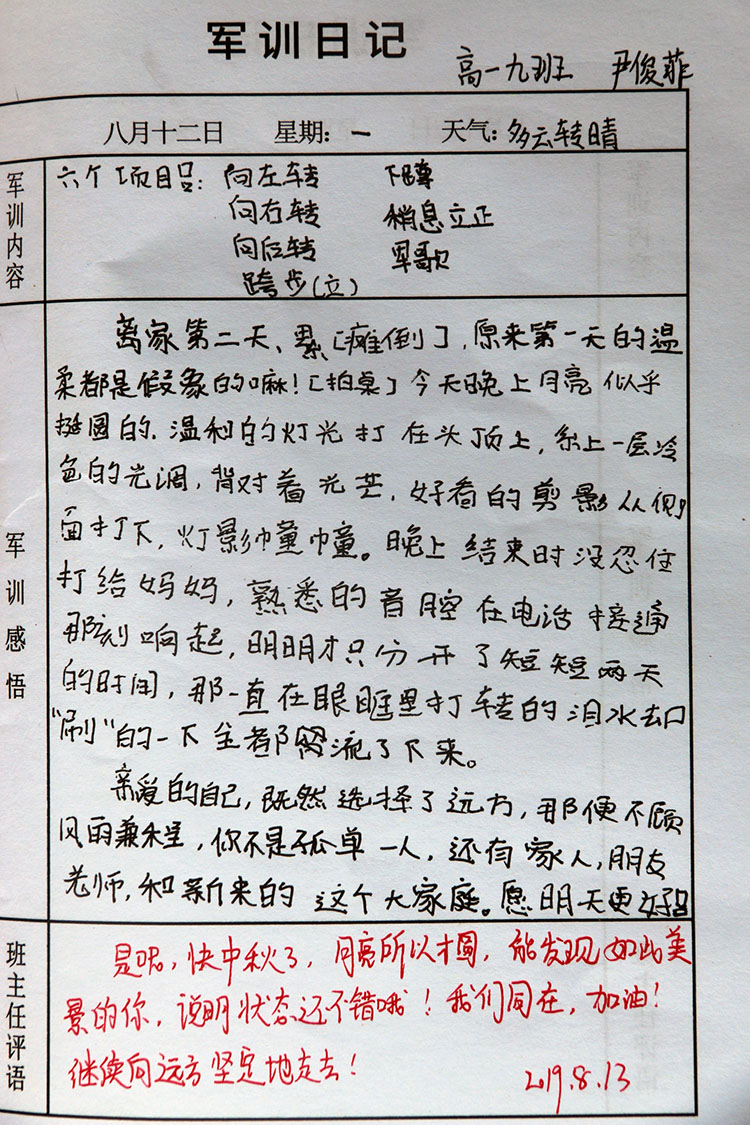 军训日记
高一九班 尹俊菲
八月十二日 星期：一 天气：多云转晴
军训内容
六个项目：向左转 下蹲
向右转 稍息立正
向后转 军歌
跨步(立)
军训感悟
离家第二天、累[瘫倒]，原来第一天的温
柔都是假象的嘛！[拍桌]今天晚上月亮似乎
挺圆的．温和的灯光打在头顶上，染上一层冷
色的光调，背对着光芒，好看的剪影从侧
面打下，灯影幢幢。晚上结束时没忍住
打给妈妈，熟悉的音腔在电话接通
那刻响起，明明才只分开了短短两天
的时间，那一直在眼眶里打转的泪水却
“刷”的一下全都流了下来。
亲爱的自己，既然选择了远方，那便不顾
风雨兼程，你不是孤单一人，还有家人，朋友
老师，和新来的这个大家庭。愿明天更好
班主任评语
是呢，快中秋了，月亮所以才圆，能发现如此美
景的你，说明状态还不错哦！我们同在，加油！
继续向远方坚定地走去！ 2019.8.13